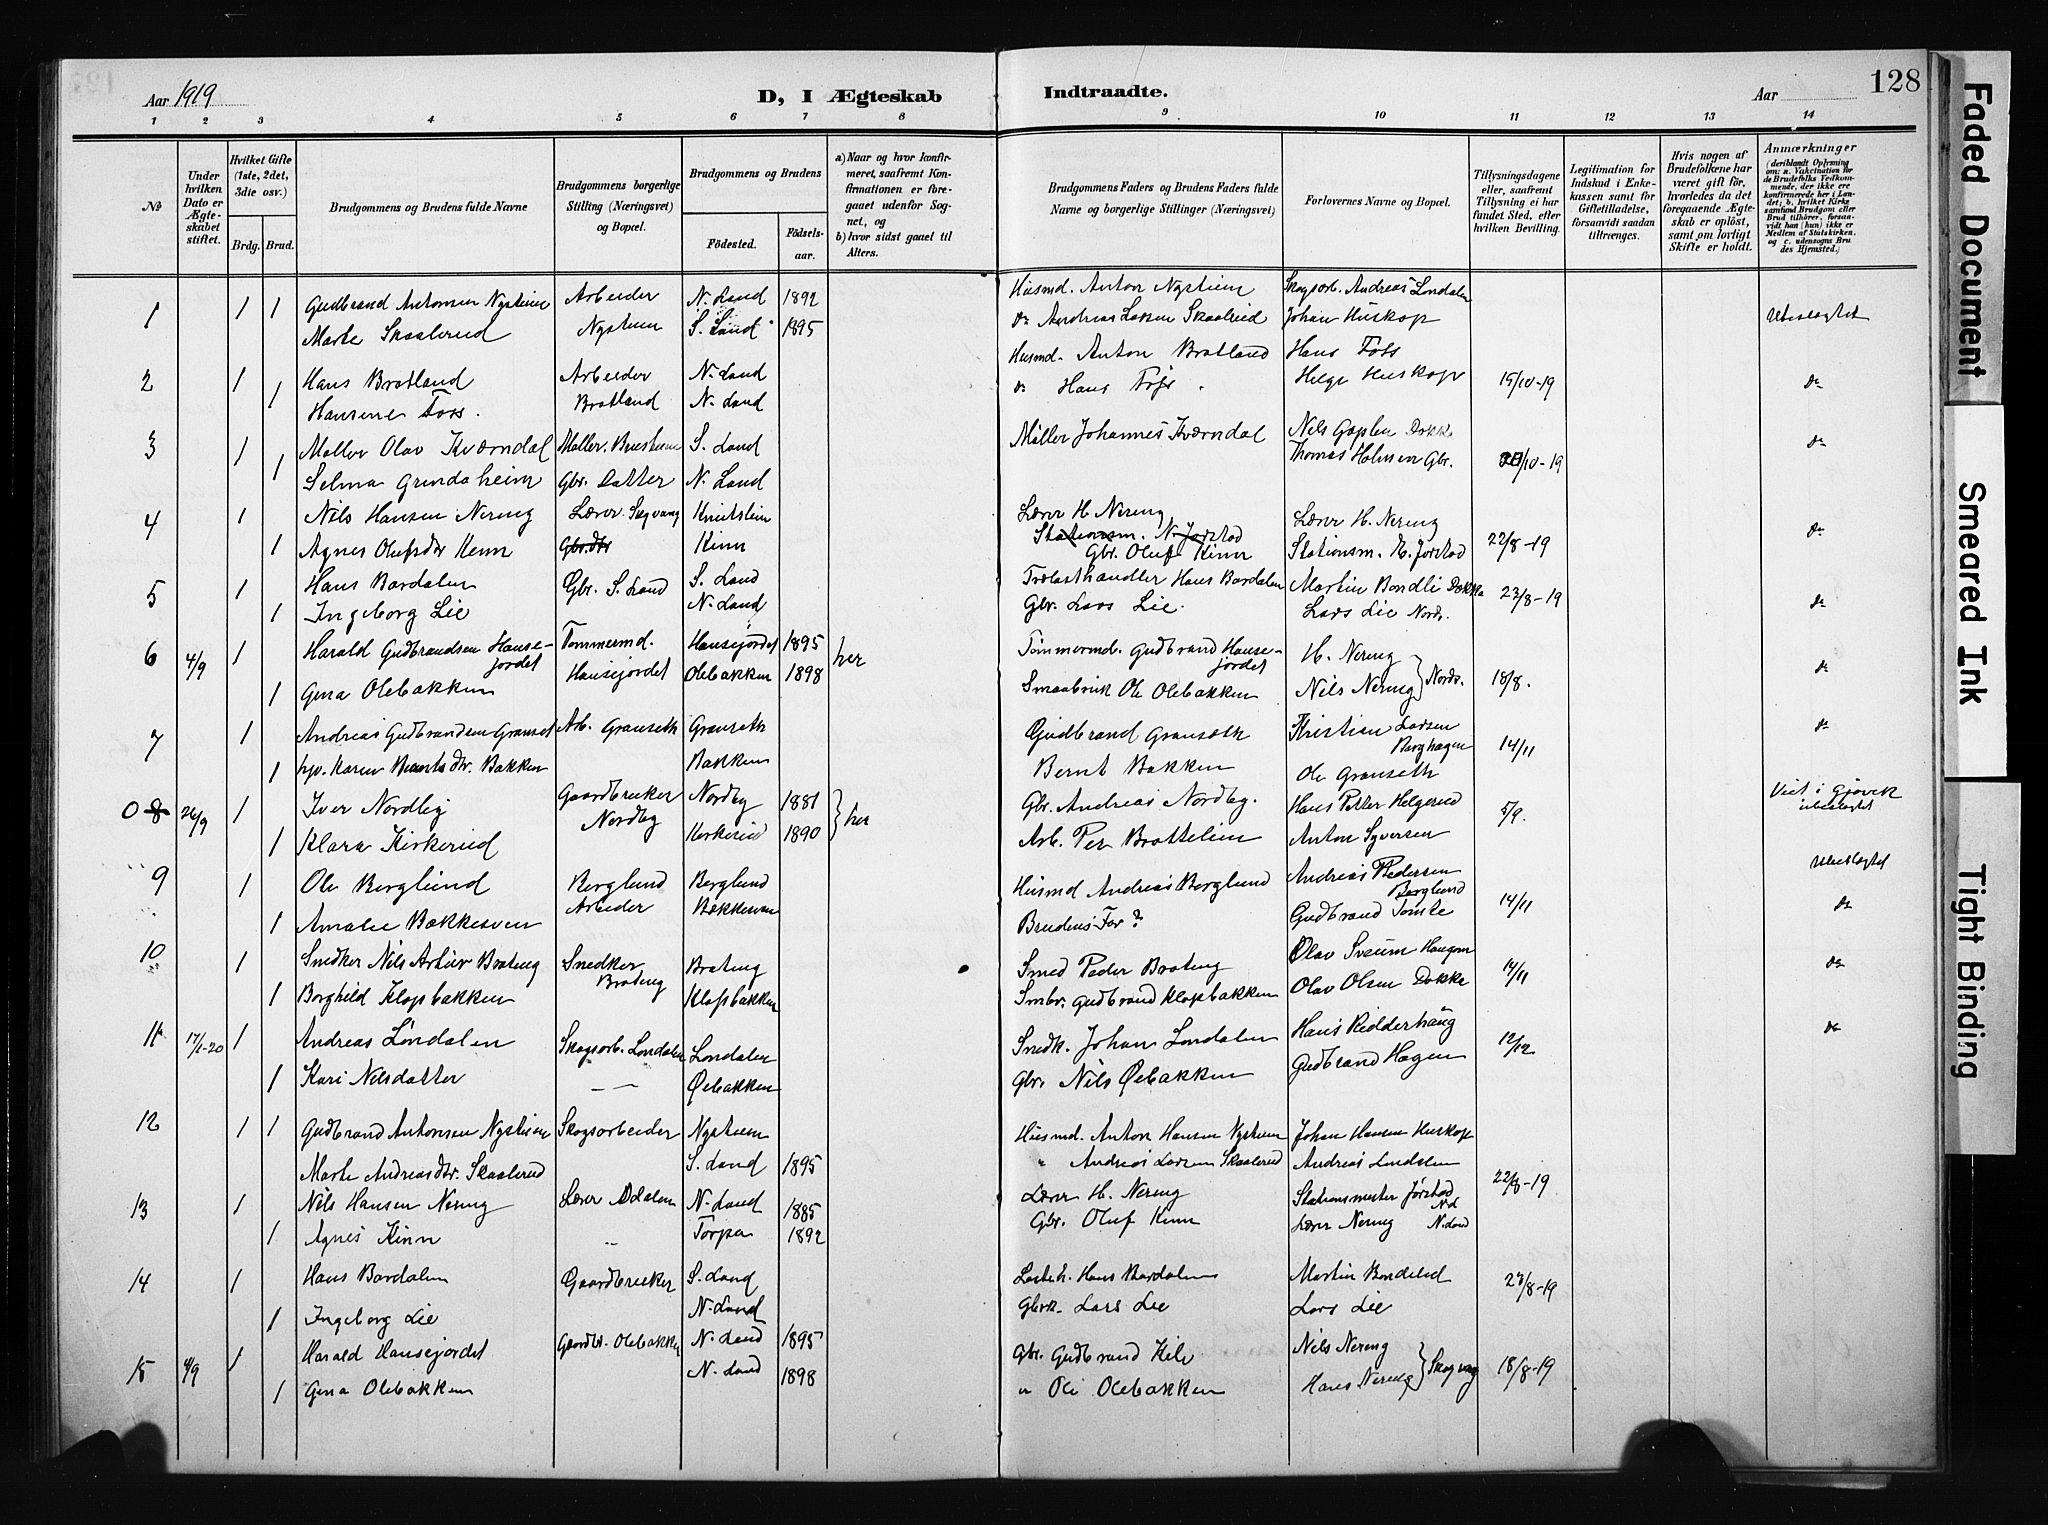 Aar 1919
D, I Ægteskab Indtraadte.
Aar
128
1 2 3 4 5 6 7 8 9 10 11 12 13 14
№
Under hvilken Dato er Ægteskabet stiftet.
Hvilket Gifte (1ste, 2det, 3die osv.)
Brdg. Brud.
Brudgommens og Brudens fulde Navne
Brudgommens borgerlige Stilling (Næringsvet) og Bopæl.
Brudgommens og Brudens
Fødested.
Fødselsaar.
a) Naar og hvor konfirmeret, saafremt Konfirmationen er foregaaet udenfor Sognet, og
b) hvor sidst gaaet til Alters.
Brudgommens Faders og Brudens Faders fulde Navne og borgerlige Stillinger (Næringsvet)
Forlovernes Navne og Bopæl.
Tillysningsdagene eller, saafremt Tillysning ei har fundet Sted, efter hvilken Bevilling.
Legitimation for Indskud i Enkekassen samt for Giftetilladelse, forsaavidt saadan tiltrænges.
Hvis nogen af Brudefolkene har været gift før, hvorledes da det foregaaende Ægteskab er opløst, samt om lovligt Skifte er holdt.
Anmærkninger
(deriblandt Oplysning om: a. Vakcination for de Brudefolks Vedkommende, der ikke ere konfirmerede her i Landet; b. hvilket Kirkesamfund Brudgom eller Brud tilhører, forsaavidt han (hun) ikke er Medlem af Statskirken, og c. udensogns Brudes Hjemsted.)
1 1 1 Gudbrand Antonsen Nysteien Arbeider N. Land 1892 Husmd. Anton Nysteien Skogsarb. Andreas Londalen
Marte Skaalerud Nysteien S. Land 1895 Do Andreas Larsen Skaalrud Johan Huskop Ubeslegtet
2 1 Hans Bratland Arbeider N. Land Husmd. Anton Bratland Hans Foss
1 Hansine Foss. Bratland N. Land Do Hans Foss Helge Huskop 15/10-19 Do
3 1 Møller Olav Kværndal S. Land Møller Johannes Kværndal Nils Gaplen Dokka
1 Selma Grindaheim Gbr. Datter N. Land Thomas Holmsen Gbr. /10-19 Do
4 1 Nils Hansen Nereng Lærer Skogvang Lærer H. Nereng Lærer H. Nereng
Stationsm. N. Jørstad
1 Agnes Olufsdtr Kinn Gbr.dtr Kinn Gbr. Oluf Kinn Stationsm. H. Jørstad 22/8-19 Do
5 1 Hans Bardalen Gbr. S. Land S. Land Trælasthandler Hans Bardalen Martin Bondli Dokka 23/8-19
1 Ingeborg Lie N. Land Gbr. Lars Lie. Lars Lie Nords. Do
6 4/9 1 Harald Gudbrandsen Hansejordet Tømmermd. Hansejordet 1895 her Tømmermd. Gudbrand Hansejordet H. Nereng
1 Gina Olebakken Hansejordet Olebakken 1898 Smaabruk Ole Olebakken Nils Nereng Nords. 18/8. Do
7 1 Andreas Gudbrandsen Granset Arb. Granseth Granseth Gudbrand Granseth Kristian Larsen Berghagen 14/11 Do
1 Karen Berntsdtr. Bakken Bakken Bernt Bakken Ole Granseth
0 8 26/9 1 Iver Nordby Gaardbruker Nordby 1881 her Gbr. Andreas Nordby. Hans Petter Helgerud 5/9. Viet i Gjøvik ubeslegtet
1 Klara Kirkerud Nordby Kirkerud 1890 Arb. Per Brattelien Anton Syversen
9 1 Ole Berglund Berglund Berglund Husmd Andreas Berglund Andreas Pedersen Berglund Ubeslegtet
1 Amalie Bækkesven Arbeider Bækkesven Brudens Far? Gudbrand Tomle 14/11 Do
10 1 Snedker Nils Artur Brateng Snedker Brateng Smed Peder Brateng Olav Sveum Haugen 14/11 Do
1 Borghild Klopbakken Brateng Klopbakken Smbr. Gudbrand Klopbakken Olav Olsen Dokka
11 17/1-20 1 Andreas Løndalen Skogsarb. Londalen Londalen Snedk. Johan Londalen Hans Ridderhaug 12/12 Do
1 Kari Nilsdatter — — Øiebakken Gbr. Nils Øiebakken Gudbrand Hagen
12 1 1 Gudbrand Antonsen Nysteien Skogsarbeider Nysteien Husmd. Anton Hansen Nysteien Johan Hansen Huskop
Marte Andreasdtr. Skaalerud S. Land 1895 " Andreas Larsen Skaalerud Andreas Londalen
13 1 Nils Hansen Nereng Lærer Odalen N. Land 1885 Lærer H. Nereng Stationsmester Jørstad 22/8-19
1 Agnes Kinn Torpa 1892 Gbr. Oluf Kinn Lærer Nereng N. Land
14 1 Hans Bardalen Gaardbruker S. Land Hans Bardalen Martin 23/8-19
1 Ingeborg Lie N. Land Gbrk. Lars Lie Lars Lie
15 4/9 1 Harald Hansejordet Gaardbr. Olebakken N. Land 1895 Gbr. Gudbrand Nils Nereng
1 Gina Olebakken N. Land 1898 " Ole Olebakken Hans Nereng Skogvang 18/8-19
Faded Document
Smeared Ink
Tight Binding